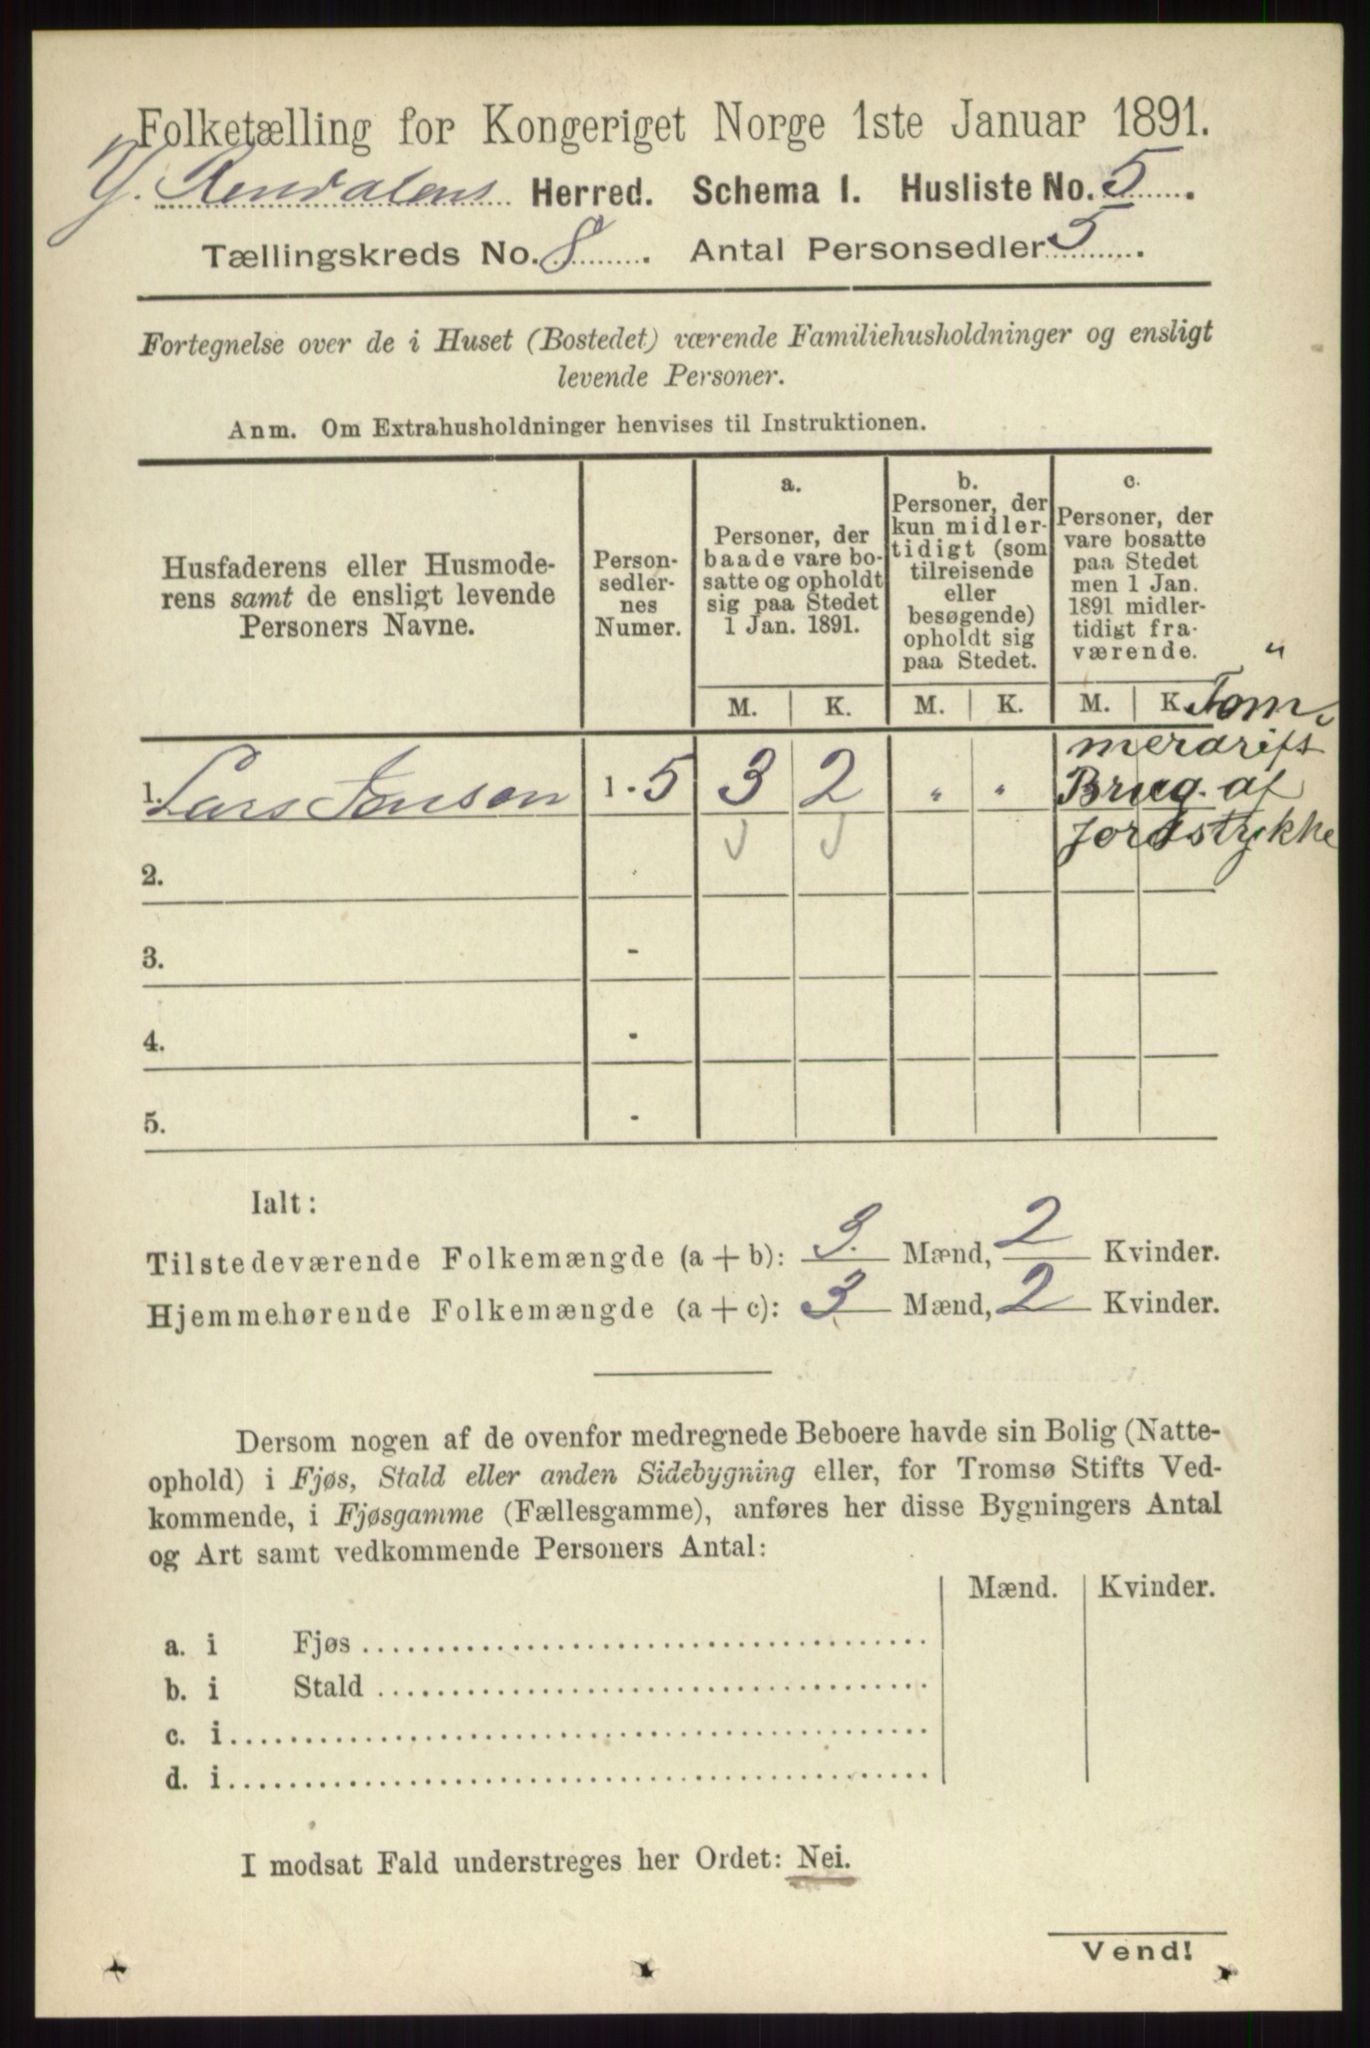 Folketælling for Kongeriget Norge 1ste Januar 1891.
Y. Rendalens Herred. Schema I. Husliste No. 5.
Tællingskreds No. 8. Antal Personsedler 5.
Fortegnelse over de i Huset (Bostedet) værende Familiehusholdninger og ensligt
levende Personer.
Anm. Om Extrahusholdninger henvises til Instruktionen.
Husfaderens eller Husmode-
rens samt de ensligt levende
Personers Navne.
Person-
sedler-
nes
Numer.
a.
Personer, der
baade vare bo-
satte og opholdt
sig paa Stedet
1 Jan. 1891.
b.
Personer, der
kun midler-
tidigt (som
tilreisende
eller
besøgende)
opholdt sig
paa Stedet.
c.
Personer, der
vare bosatte
paa Stedet
men 1 Jan.
1891 midler-
tidigt fra-
værende.
M. K. M. K. M. K.
"
Tom-
merdrift
Brug af
jordstykke
1. Lars Jonson 1 - 5 3 2 " "
2.
3. -
4. -
5. -
Ialt:
Tilstedeværende Folkemængde (a + b): 3. Mænd, 2 Kvinder.
Hjemmehørende Folkemængde (a + c): 3 Mænd, 2 Kvinder.
Dersom nogen af de ovenfor medregnede Beboere havde sin Bolig (Natte-
ophold) i Fjøs, Stald eller anden Sidebygning eller, for Tromsø Stifts Ved-
kommende, i Fjøsgamme (Fællesgamme), anføres her disse Bygningers Antal
og Art samt vedkommende Personers Antal:
Mænd. Kvinder.
a. i Fjøs
b. i Stald
c. i
d. i
I modsat Fald understreges her Ordet: Nei.
Vend!